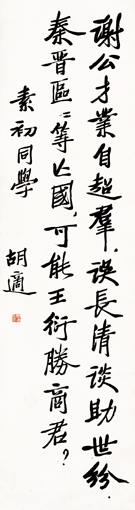 謝公才業自超羣，誤長清談助世紛．
秦晉區區等亡國，可能王衍勝商君？
素初同學
胡適